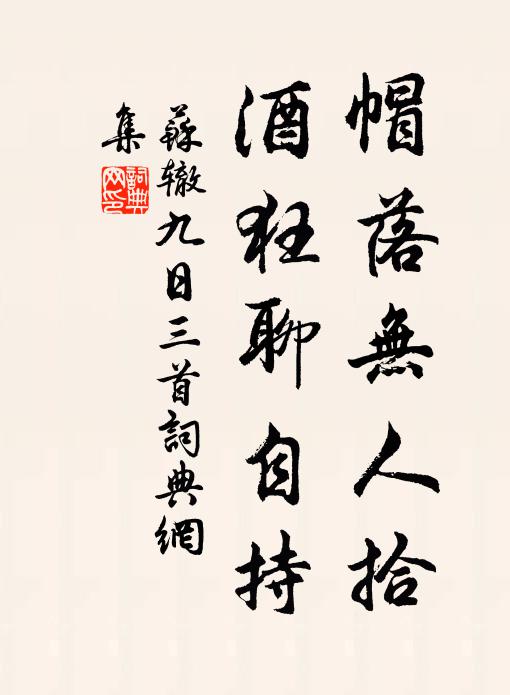 帽落無人拾
酒狂聊自持
蘇辙九日三首詞典網
集
詞典
网印